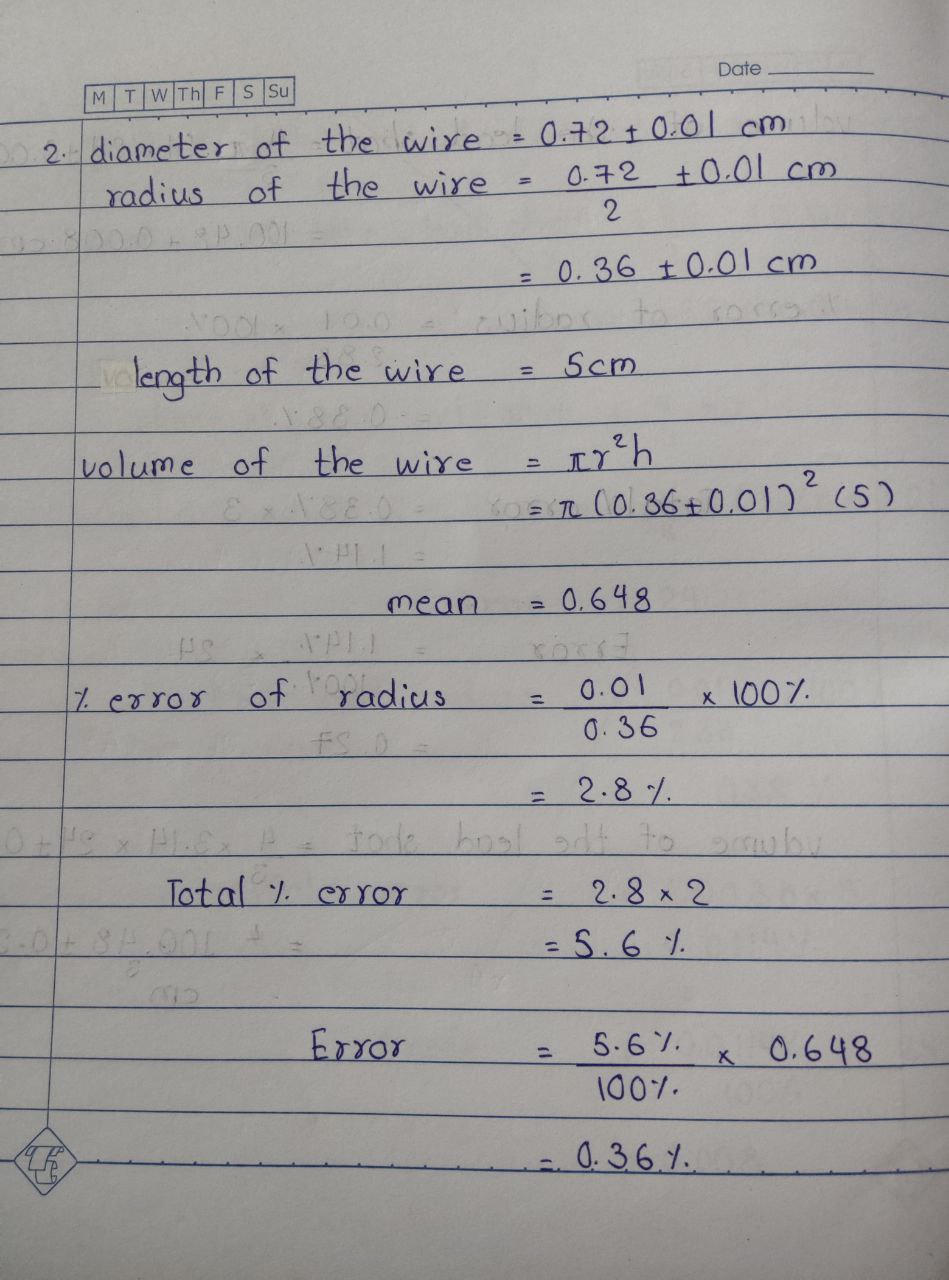 Date
M T W Th F S Su
2. diameter of the wire = 0.72 ± 0.01 cm
radius of the wire = 0.72/2 ± 0.01 cm
= 0.36 ± 0.01 cm
length of the wire = 5cm
volume of the wire = πr²h
= π (0.36±0.01)² (5)
mean = 0.648
% error of radius = 0.01/0.36 × 100%
= 2.8 %
Total % error = 2.8 × 2
= 5.6 %
Error = 5.6%/100% × 0.648
= 0.36%